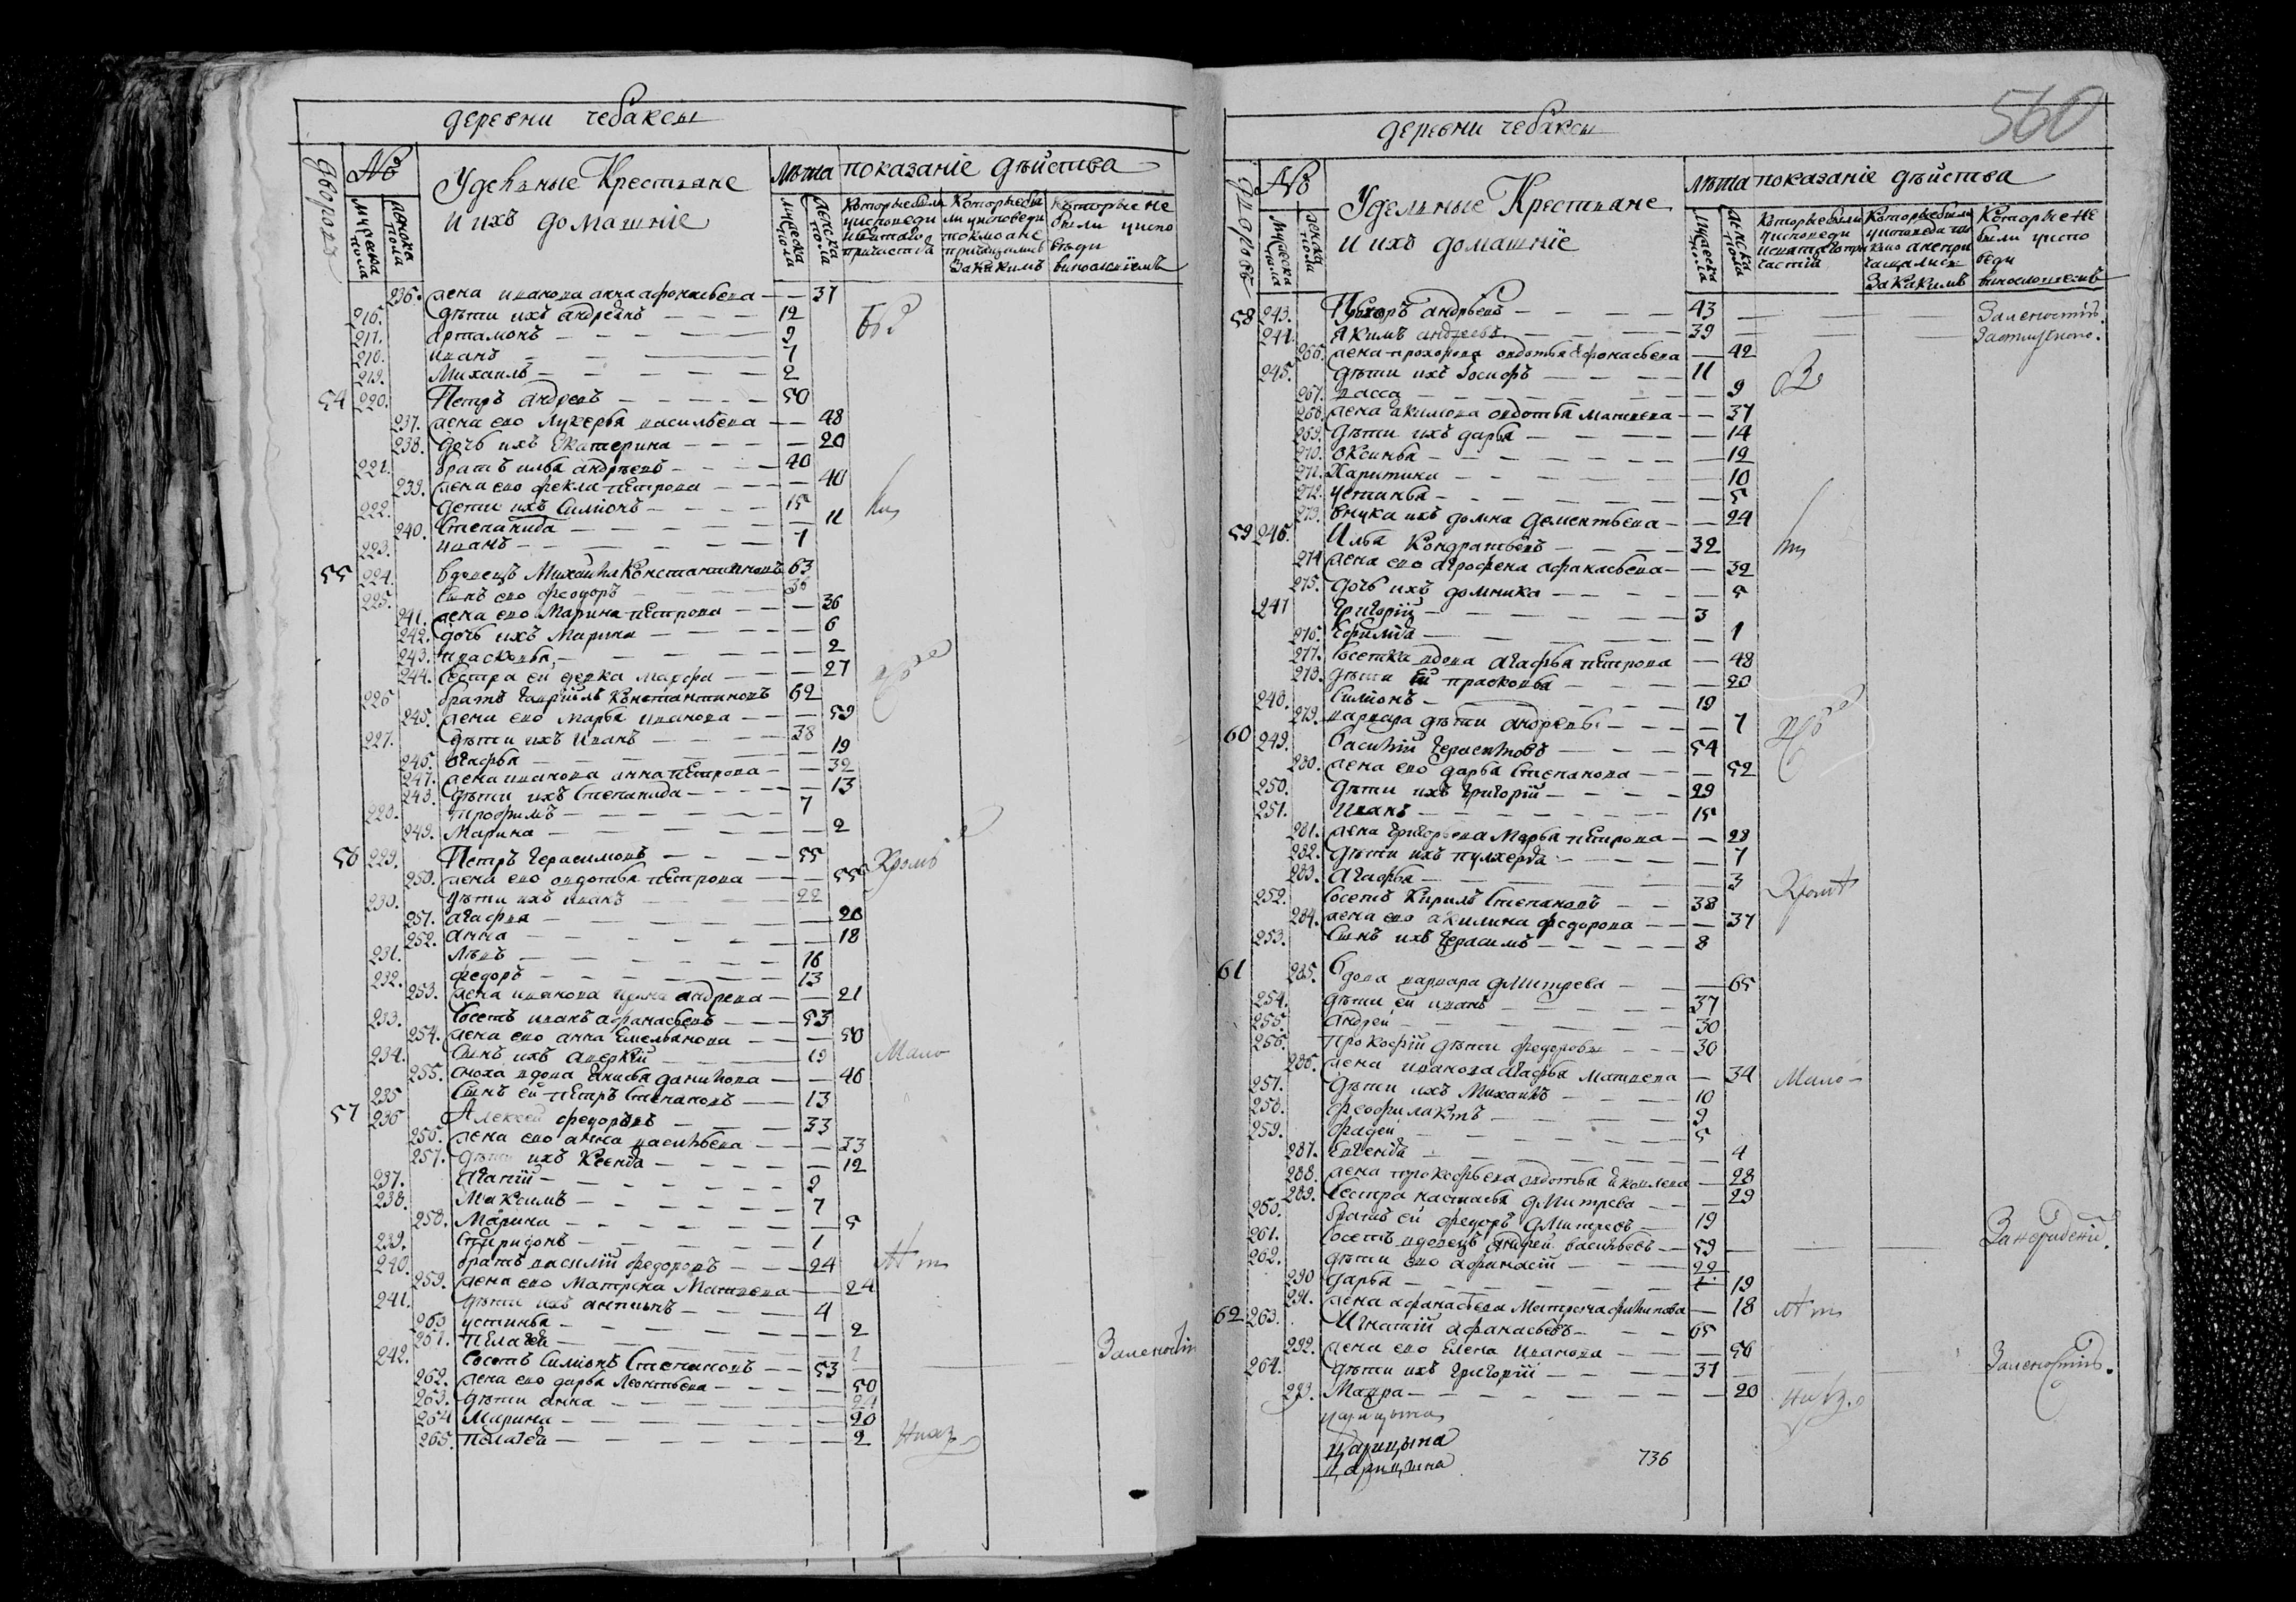 деревни чебаксы
дворовъ № Удельные Крестьяне Лѣта показанiе дѣйства
и ихъ домашнiе
мужеска пола женска пола мужеска пола женска пола
Которые были у исповеди и святаго причастiя
Которые бы ли у исповеди токмо а не причащались За какимъ
Которые не были у испо вѣди
236. жена иванова анна афонасьева — — 37
216. дѣти ихъ андреянъ — — — 12
217. артамонъ — — — 9
218. иванъ — — — 7
219. Михаилъ — — — 2
54 220. Петръ андреевъ — — — 50
237. жена ево Лукерья васильева — — 48
238. дочь ихъ Екатерина — — — 20
221. братъ илья андрѣевъ — — — 40
239. жена ево фекла петрова — — — 40
222. дети ихъ Симионъ — — — 15
240. Степанида — — — 11
223. иванъ — — — 7
55 224. вдовецъ Михаила Константиновъ 63
225. Сынъ ево феодоръ — — — 36
241. жена ево Марина петрова — — — 36
242. дочь ихъ Марина — — — 6
243. прасковья — — — 2
244. Сестра ей девка Марфа — — — 27
226 братъ гаврiилъ Константиновъ 62
245. жена ево Марья иванова — — — 59
227. дѣти ихъ Иванъ — — — 38
246. агафья — — — 19
247. жена иванова анна петрова — — 32
248. дѣти ихъ Степанида — — — 13
228. трофимъ — — — 7
249. Марина — — — 2
56 229. Петръ Герасимовъ — — — 55
250. жена ево авдотья петрова — — — 55
230. дѣти ихъ иванъ — — — 22
251. агафья — — — 20
252. анна — — — 18
231. Левъ — — — 16
232. федоръ — — — 13
253. жена иванова ирина андреева — — 21
233. Соседъ иванъ афанасьевъ — — 53
254. жена ево анна Емельянова — — 50
234. Сынъ ихъ аверкiй — — — 19
255. сноха вдова Анисья данилова — — 40
235 Сынъ ей петръ Степановъ — — 13
57 236 Алексей федоровъ — — — 33
256. жена ево анна васильева — — — 33
257. дѣти ихъ Ксенiя — — — 12
237. Агапiй — — — 9
238. Максимъ — — — 7
258. Марина — — — 5
239. Спиридонъ — — — 1
240. братъ василiй федоровъ — — — 24
259. жена ево Матрена Матвеева — — 24
241. дѣти ихъ антипъ — — — 4
260 устинья — — — 2
261. Пелагея — — — 1
242. Соседъ Симiонъ Степановъ — — 53
262. жена ево дарья Леонтьева — — — 50
263. дѣти анна — — — 24
264 Марина — — — 20
265. пелагея — — — 2
560
деревни чебаксы
дворовъ № Удельные Крестьяне лѣта показанiе дѣйства
и ихъ домашнiе
мужеска пола женска пола мужеска пола женска пола
Которые были у исповеди и святаго причастiя
Которые были у исповеди токмо а не причащались За какимъ
Которые не были у испо веди
58 243. Прохоръ андрѣевъ — — — 43 — — Заленостiю.
244. Якимъ андреевъ — — — 39 — Заотлучкою.
266. жена прохорова авдотья афонасьева — 42
245. дѣти ихъ Iосифъ — — — 11
267. васса — — — 9
268. жена акимова авдотья Матвеева — — 37
269. дѣти ихъ дарья — — — 14
270. оксинья — — — 12
271. Харитина — — — 10
272. устинья — — — 5
273. внука ихъ домна дементьева — — 24
59 246. Илья Кондратьевъ — — — 32
274 жена ево агрофена афанасьева — — 32
275. дочь ихъ домника — — — 5
247 Григорiй — — — 3
276. — — — 1
277. Соседка вдова агафья петрова — 48
278. дѣти ей прасковья — — — 20
248. Симiонъ — — — 19
279. варвара дѣти андреевы — — — 7
60 249. Василiй Герасимовъ — — — 54
280. жена ево дарья Степанова — — — 52
250. дѣти ихъ григорiй — — — 29
251. Иванъ — — — 15
281. жена григорьева Марья петрова — — 28
282. дѣти ихъ пулхерiя — — — 7
283. Агафья — — — 3
252. Соседъ Кирилъ Степановъ — — 38
284. жена ево акилина федорова — — — 37
253. Сынъ ихъ Герасимъ — — — 8
61 285. Вдова варвара дмитрева — — 65
254. дѣти ей иванъ — — — 37
255. Андрей — — — 30
256. Прокофiй дѣти федоровы — — — 30
286. жена иванова агафья Матвеева — 34
257. дѣти ихъ Михаилъ — — — 10
258. феофилактъ — — — 9
259. фадей — — — 5
287. Евгенiя — — — 4
288. жена прокофьева авдотья яковлева — 28
289. Сестра настасья дмитрева — — 29
260. братъ ей федоръ дмитревъ — 19
261. Соседъ вдовецъ андрей васильевъ — 59 — —
262. дѣти ево афанасiй — — — 22
290 дарья — — — 19
291. жена афанасьева Матрена филипова — 18
62 263. Игнатiй афанасьевъ — — — 65
292. жена ево Елена иванова — — — 56
264. дѣти ихъ григорiй — — — 31 — — Заленостiю.
293. Мавра — — — 20
царицына
царицына
царицына
736